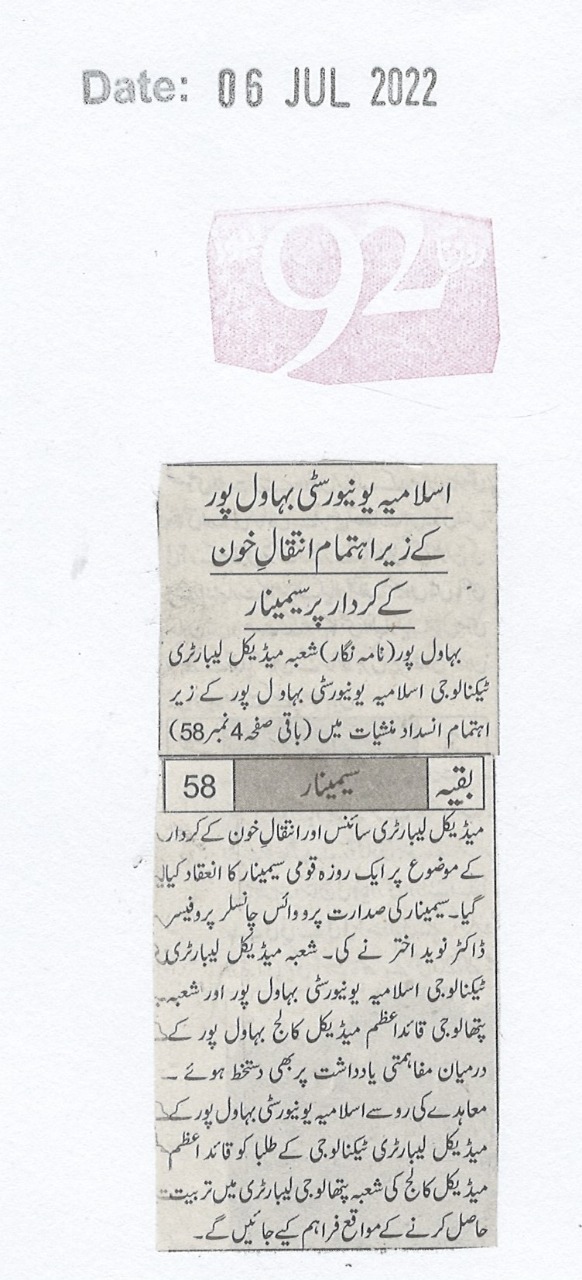 Date: 06 JUL 2022
92
اسلامیہ یونیورسٹی بہاول پور
کے زیر اہتمام انتقالِ خون
کے کردار پر سیمینار
بہاول پور (نامہ نگار) شعبہ میڈیکل لیبارٹری
ٹیکنالوجی اسلامیہ یونیورسٹی بہاو ل پور کے زیر
اہتمام انسداد منشیات میں (باقی صفحہ 4 نمبر 58)
بقیہ سیمینار 58
میڈیکل لیبارٹری سائنس اور انتقال خون کے کردار
کے موضوع پر ایک روزہ قومی سیمینار کا انعقاد کیا
گیا۔ سیمینار کی صدارت پرو وائس چانسلر پروفیسر
ڈاکٹر نوید اختر نے کی۔ شعبہ میڈیکل لیبارٹری
ٹیکنالوجی اسلامیہ یونیورسٹی بہاول پور اور شعبہ
پتھالوجی قائداعظم میڈیکل کالج بہاول پور کے
درمیان مفاہمتی یادداشت پر بھی دستخط ہوئے ۔
معاہدے کی رو سے اسلامیہ یونیورسٹی بہاول پور کے
میڈیکل لیبارٹری ٹیکنالوجی کے طلبا کو قائد اعظم
میڈیکل کالج کی شعبہ پتھالوجی لیبارٹری میں تربیت
حاصل کرنے کے مواقع فراہم کیے جائیں گے۔